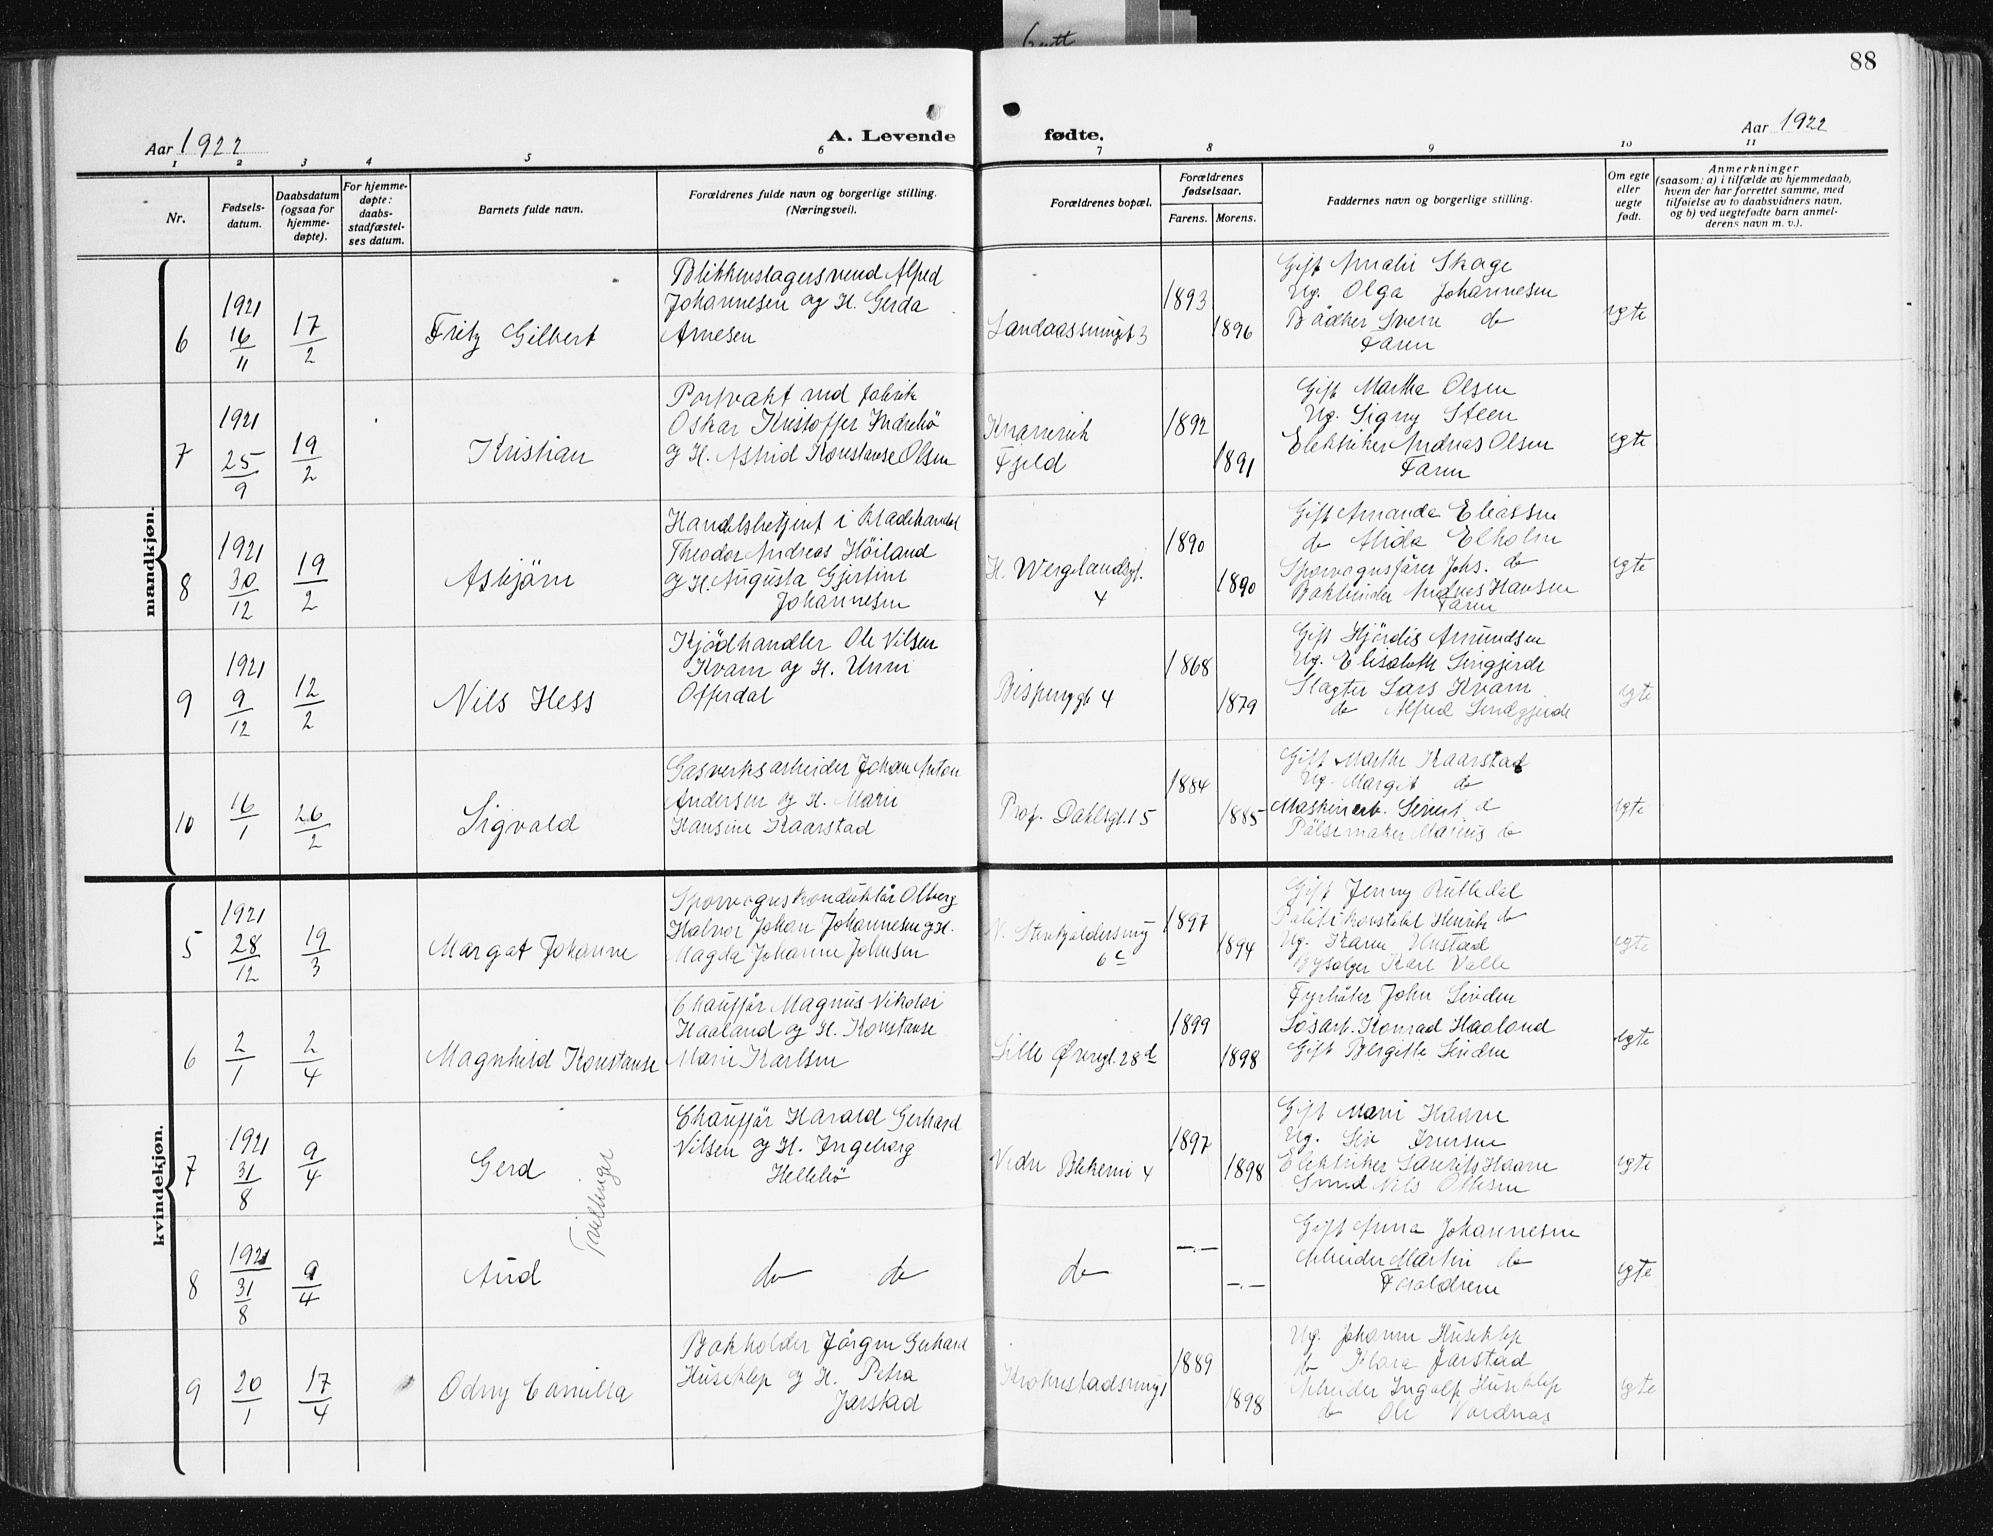 88
Aar 1922
A. Levende
fødte.
Aar 1922
1 2 3 4 5 6 7 8 9 10 11
Nr.
Fødsels-
datum.
Daabsdatum
(ogsaa for
hjemme-
døpte).
For hjemme-
døpte:
daabs-
stadfæstel-
ses datum.
Barnets fulde navn.
Forældrenes fulde navn og borgerlige stilling.
(Næringsvei).
Forældrenes bopæl.
Forældrenes
fødselsaar.
Farens. Morens.
Faddernes navn og borgerlige stilling.
Om egte
eller
uegte
født.
Anmerkninger
(saasom: a) i tilfælde av hjemmedaab,
hvem der har forrettet samme, med
tilføielse av to daabsvidners navn,
og b) ved uegtefødte barn anmel-
derens navn m. v.).
mandkjøn.
6
1921
16
11
17
2
Fritz Gilbert
Blikkenslagersvend Alfred
Johannesen og H. Gerda
Arnesen
1893
1896
Gift Amalie Skage
Ug. Olga Johannesen
Bødker Sverre do
Faren
egte
7
1921
25
9
19
2
Kristian
Portvakt ved fabrik
Oskar Kristoffer Indrebö
og H. Astrid Konstanse Olsen
Knarrevik
Fjeld
1892
1891
Gift Martha Olsen
Ug. Signy Steen
Elektriker Andreas Olsen
Faren
egte
8
1921
30
12
19
2
Asbjørn
Handelsbetjent i
Theodor Andreas Höiland
og H. Augusta Gjertine
Johannesen
H. Wergelandsgt.
4
1890
1890
Gift Amanda Eliassen
do Alida Elholm
Sporvognsfører Johs. do
Bokbinder Andreas Hansen
Faren
egte
9
1921
9
12
12
2
Nils Hess
Kjødhandler Ole Nilsen
Kvam og H. Unni
Offerdal
4
1868
1879
Gift Hjördis Amundsen
Ug. Elisabeth
Slagter Lars Kvam
do Alfred
egte
10
16
1
26
2
Sigvald
Gasverksarbeider Johan Anton
Andersen og H. Marie
Hansine Kaarstad
Prof. Dahlsgt. 15
1884
1885
Gift Marthe Kaarstad
Ug. Margit do
Maskinarb. Sivert d
Pølsemaker Marius do
egte
kvindekjøn.
5
1921
28
12
19
3
Margot Johanne
Sporvognskonduktør Olberg
Halvor Johan Johannesen og H.
Magda Johanne Johnsen
N. Stenkjeldersmug
6c
1897
1894
Gift Jenny Rutledal
Politikonstabel Henrik do
Ug. Karen
Bysælger Karl Valle
egte
6
2
1
2
4
Magnhild Konstanse
Chauffør Magnus Nikolai
Haaland og H. Konstanse
Marie Karlsen
Lille Øvregt. 28d
1899
1898
Fyrbøter John Linden
Løsarb. Konrad Haaland
Gift Bergitte Linden
egte
7
1921
31
8
9
4
Gerd
Tvillinger
Chauffør Harald Gerhard
Nilsen og H. Ingeborg
Hellebö
Nedre Blekevei 4
1897
1898
Gift Marie Haavre
Ug. Liv Iversen
Elektriker Laurits Haavre
Smed Nils Ottesen
egte
8
1921
31
8
9
4
Aud
do do
do
—.—
—.—
Gift Anna Johannesen
Arbeider Martin do
Forældrene
egte
9
20
1
17
4
Odny Camilla
Bokholder Jörgen Gerhard
Huseklep og H. Petra
Jarstad
1889
1898
Ug. Johanne Huseklep
do Klara Jarstad
Arbeider Ingolf Huseklep
do Ole Vardnas
egte